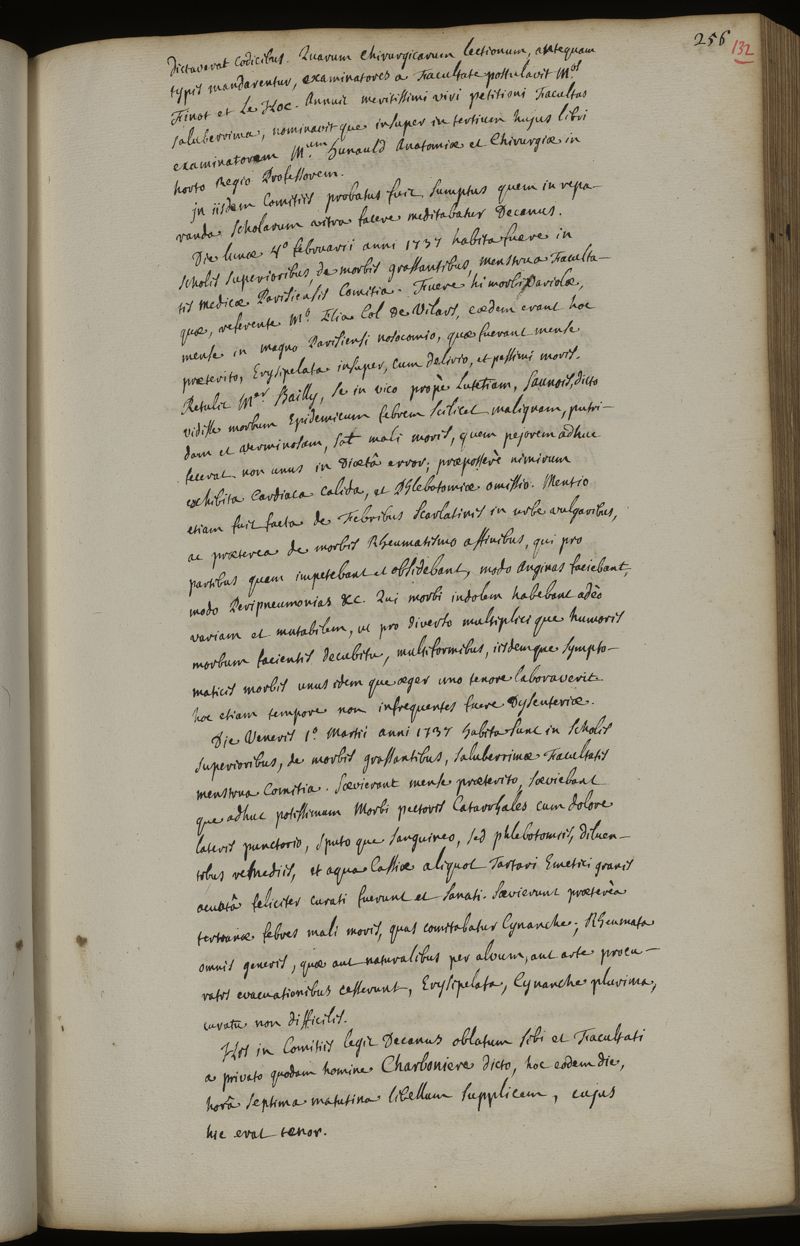 256
132
dictaverat codicibus. Quarum Chirurgicarum lectionum, antequam
typis mandarentur, examinatores a Facultate postulavit M.os
Finot et Le Hoc. Annuit meritissimi viri petitioni Facultas
saluberrima, nominavitque insuper in tertium hujus libri
examinatorem M.um Hunauld Anatomiæ et Chirurgiæ in
horto Regio Professorem.
In iisdem Comitiis probatus fuit sumptus quem in repa-
randa Scholarum vitra facere meditabatur Decanus.
Die lunæ 4.o februarii anni 1737 habita fuere in
Scholis Superioribus, de morbis grassantibus, menstrua Faculta-
tis medicæ Parisiensis Comitia. Fuere hi morbi Variolæ,
quæ, referente M.o Elia Col De Vilars, eædem erant hoc
mense in magno Parisiensi nosocomio, quæ fuerant mense
præterito, Erysipelata insuper, cum delirio, et pessimi moris.
Retulit M.er Bailly, se in vico propè Lutetiam, Saunois, dicto
vidisse morbum Epidemicum febrem scilicet malignam, putri-
dam et verminosam, sat mali moris, quem pejorem adhuc
fecerat non unus in Diætâ error; præposterè nimirum
exhibita Cardiaca calida, et Phlebotomiæ omissio. Mentio
etiam fuit facta de Febribus Scarlatinis in urbe vulgaribus,
ac præterea de morbis Rheumatismo affinibus, qui pro
partibus quam impetebant et obsidebant, modo anginas faciebant,
modo Peripneumonias &c. Qui morbi indolem habebant adeò
variam et mutabilem, ut pro diverso multiplicique humoris
morbum facientis decubitu, multiformibus, iisdemque sympto-
maticis morbis unus idemque æger uno tenore laboraverit.
hoc etiam tempore non infrequentes fuere Dysenteriæ.
Die Veneris 1.o Martii anni 1737 habita sunt in Scholis
superioribus, de morbis grassantibus, saluberrimæ Facultatis
menstrua Comitia. Sævierant mense præterito, sæviebant
que adhuc potissimum Morbi pectoris Catarrhales cum dolore
lateris punctorio, sputo que sanguineo, sed phlebotomiis, diluen-
tibus remediis, et aqua Cassiæ aliquot Tartari Emetici granis
acutâ feliciter curati fuerunt et sanati. Sævierunt prætereà
tertianæ febres mali moris, quas comitabatur Cynanche; Rheumata
omnis generis, quæ aut naturalibus per alvum, aut arte procu-
ratis evacuationibus cesserunt, Erysipelata, Cynanche plurima,
curatu non difficilis.
His in Comitiis legit Decanus oblatum sibi et Facultati
a privato quodam homine Charboniere dicto, hoc eodem die,
horâ septima matutina libellum supplicem, cujus
hic erat tenor.